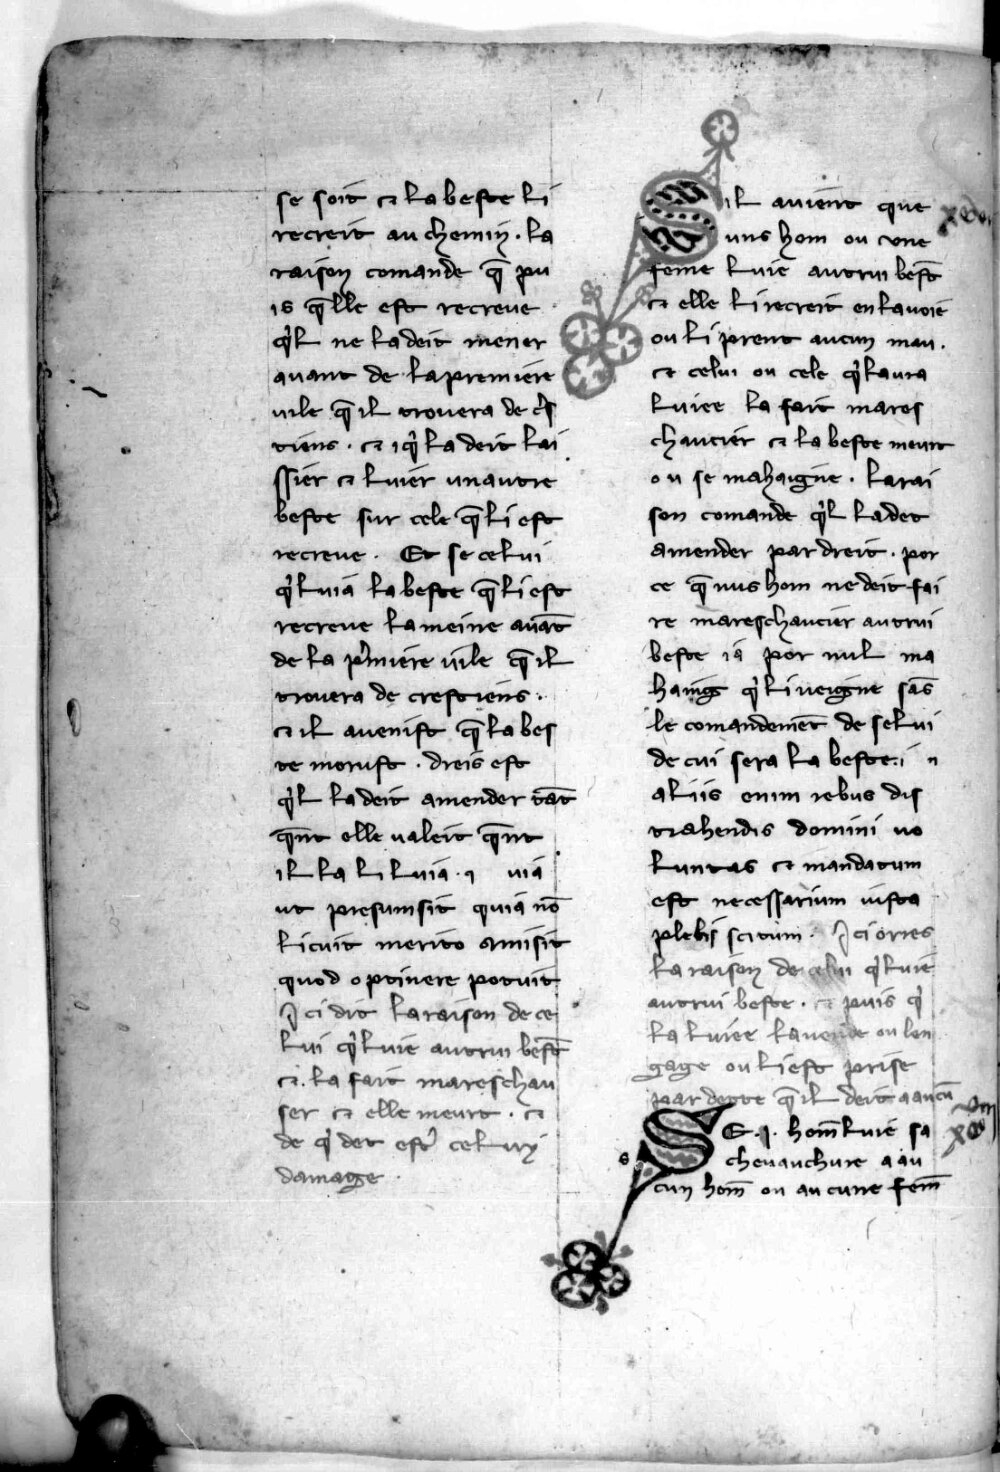 se soit ⁊ la beste li
recreit au chemin . la
raison comande q̄ pu
is q̄lle est recreue
q̍l ne la deit mener
auant de la premiere
uile q̄ il trouera de c̍s
tiens . ⁊ iq̍ la deit lai
ssier ⁊ luier un autre
beste sur cele q̄ li est
recreue . Et se celui
q̍ luia la beste q̄ li est
recreue la meine auāt
de la p̍miere uile q̄ il
trouera de crestiens .
⁊ il auenist q̄ la bes
te morust . dreis est
q̍l la deit amender tāt
q̄nt elle ualeit q̄nt
il la li luia . uia
ut presumsit quia nō
licuit merito amisit
quod optinere potuit
Ici dit la raison de ce
lui q̍ luie autrui best̄
⁊ . la fait mareschau
ser ⁊ elle meurt . ⁊
de q̍ det est̍ celuy
damage .
Sil auient que
uns hom ou une
feme luie autrui best̄
⁊ elle li recreit en la uoie
ou li prent aucun mau .
⁊ celui ou cele q̍ laura
luiee la fait mares
chaucier ⁊ la beste meurt
ou se mahaigne . la rai
son comande q̍l la det
amender par dreit . por
ce q̄ nus hom ne deit fai
re mareschaucier autrui
beste ia por nul ma
haing q̍ li ueigne sās
le comandemēt de selui
de cui sera la beste . in
aliis enim rebus dis
trahendis domini uo
luntas ⁊ mandatum
est necessarium iusta
plebis scitum . Ici orres
la raison de celui q̍ luie
autrui beste . ⁊ puis q̍
la luiee la uende ou len
gage ou li est prise
par dette q̄ il deit a aucū
SE .i. hom̄ luie sa
cheuauchure a au
cun hom̄ ou aucune fem̄